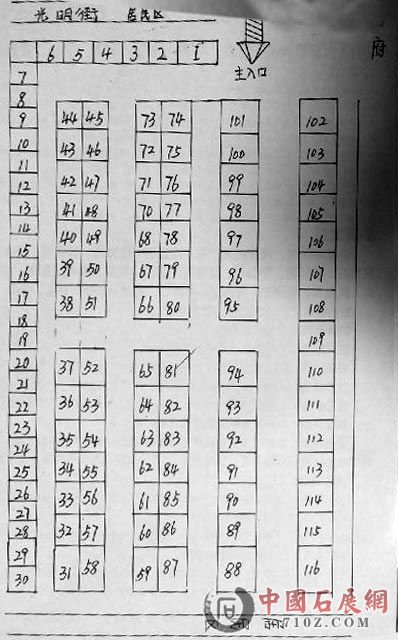 光明街 居民区
府
主入口
6 5 4 3 2 1
7
8
9 44 45 73 74 101 102
10 43 46 72 75 100 103
11
12 42 47 71 76 99 104
13 41 48 70 77 98 105
14
15 40 49 68 78 97 106
16 39 50 67 79 96 107
17 38 51 66 80 95 108
18
19 109
20 37 52 65 81 94 110
21
22 36 53 64 82 93 111
23
24 35 54 63 83 92 112
25 34 55 62 84 91 113
26 33 56 61 85 90 114
27
28 32 57 60 86 89 115
29
30 31 58 59 87 88 116
中國石展網
710Z.COM